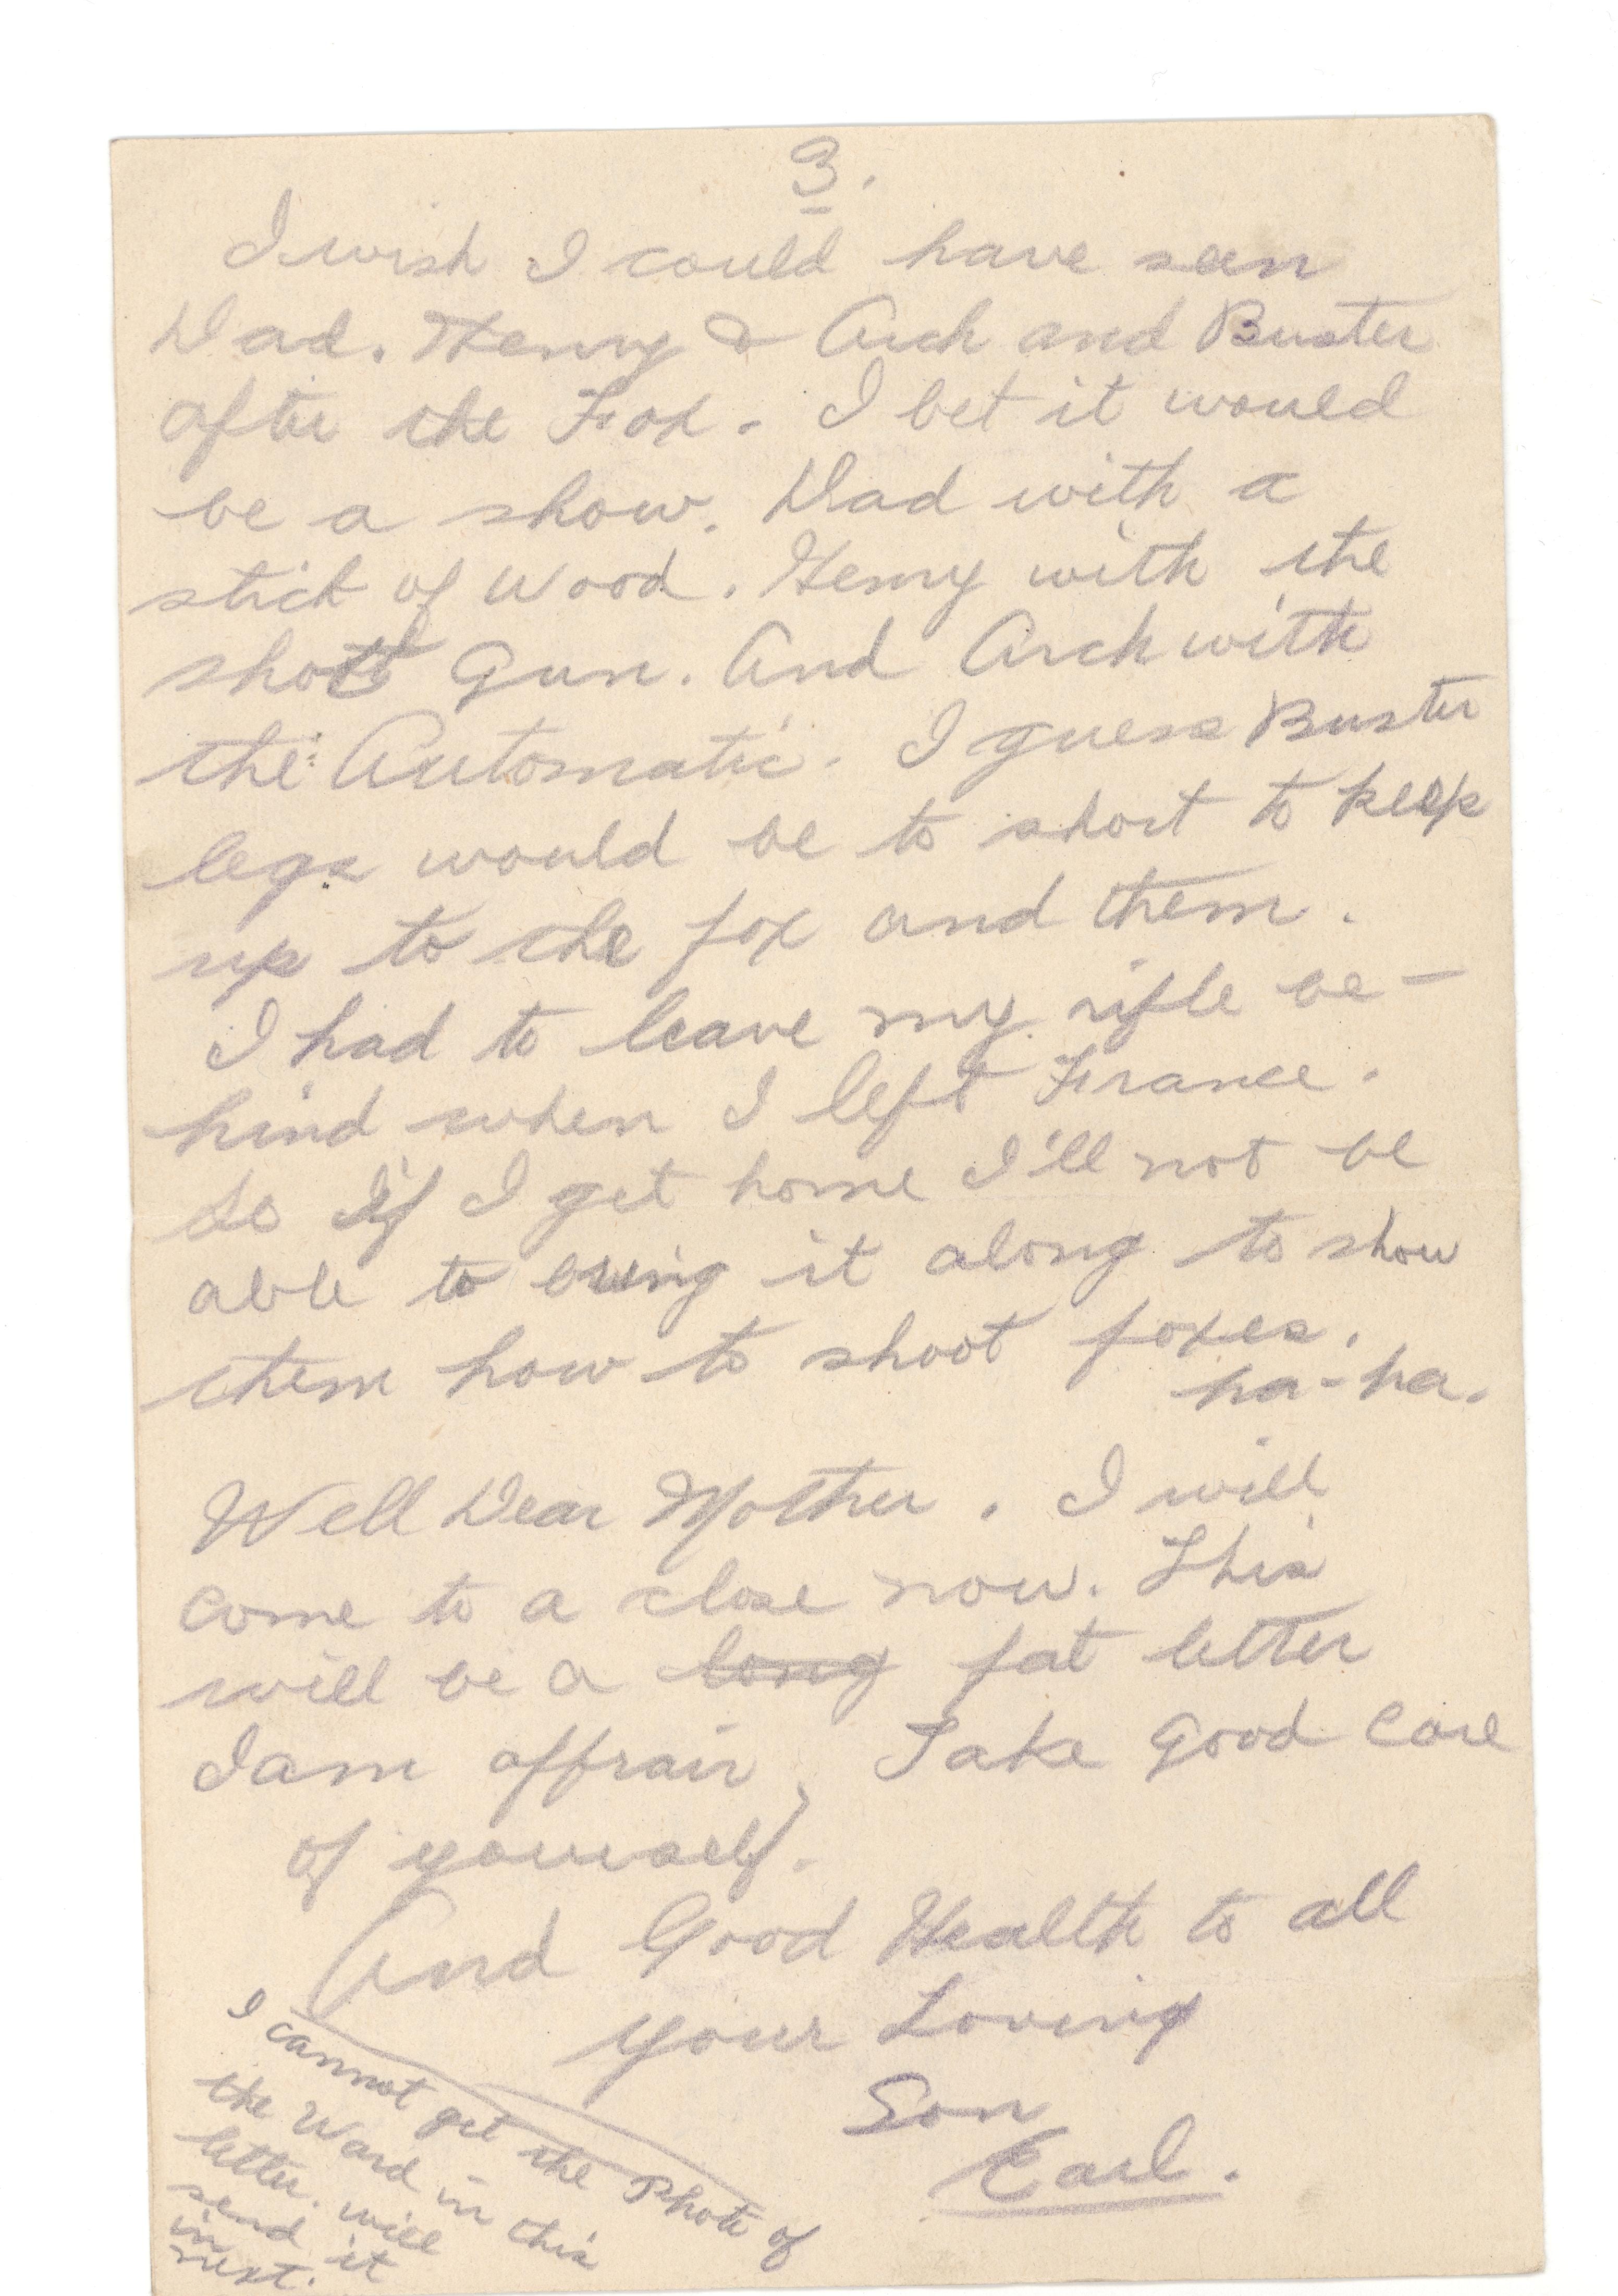 3.
I wish I could have seen
Dad. Henry & Arch and Buster
after the Fox. I bet it would
be a show. Dad with a
stick of wood. Henry with the
shott Gun. And Arch with
the Automatic. I guess Buster
legs would be to short to keep
up to the fox and them.
I had to leave my rifle be-
hind when I left France.
So if I get home I'll not be
able to bring it along to show
them how to shoot foxes.
ha-ha.
Well Dear Mother. I will
come to a close now. This
will be a long fat letter
I am affrair, Take Good Care
of yourself.
And Good Health to all
your Loving
Son
Earl.
I cannot get the Photo of
the Ward in this
letter. will
send it
in
next.